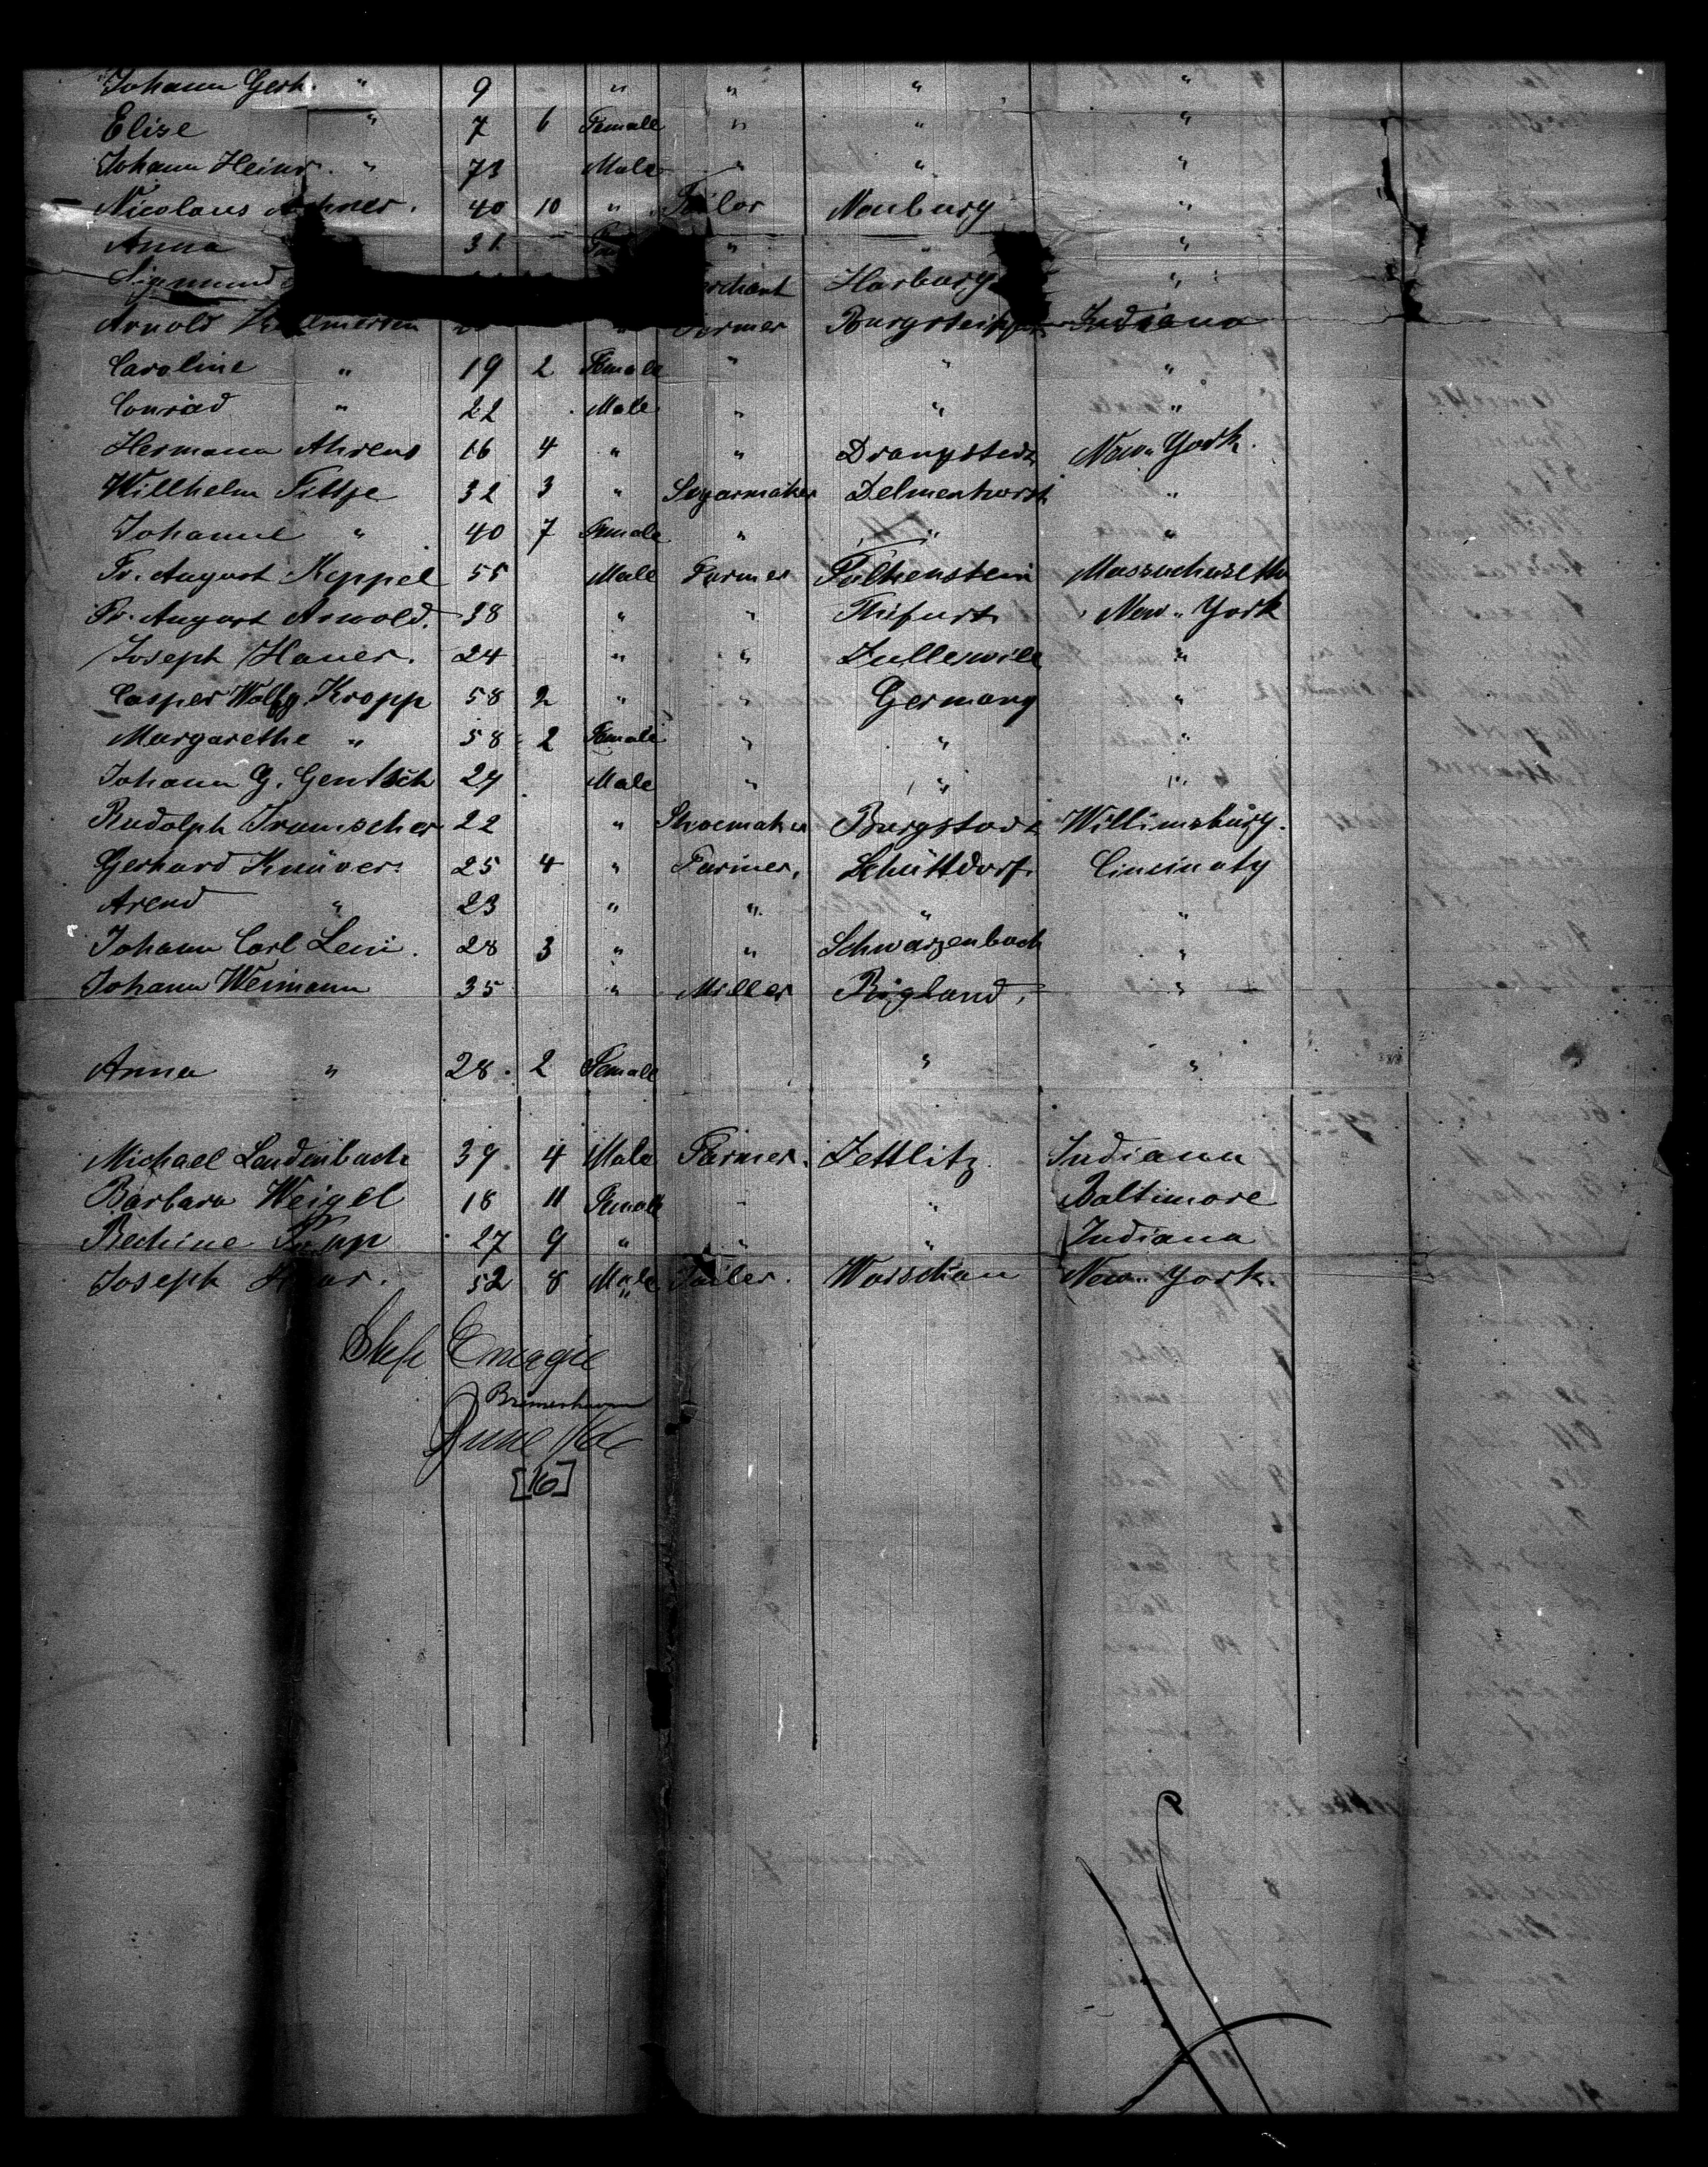 Johann Gerh. " 9 " " " "
Elise " 7 6 Female " " "
Johann Heinr. " 73 Male " " "
Nicolaus 40 10 " Tailor Neuburg "
Anna 31 " " "
Sigmund Harburg "
Arnold Farmer Indiana
Caroline " 19 2 Female " " "
Conrad " 22 Male " " "
Hermann Ahrens 16 4 " " Drangstedt New York.
Willhelm 32 3 " Segarmaker Delmenhorst "
Johanne " 40 7 Female " " "
Fr. August Keppel 55 Male Farmer Falkenstein Massachusetts
Fr. August Arnold. 38 " " New York
Joseph Hauer. 24 " " "
Casper Wolfg. Kropp 58 2 " " Germany "
Margarethe " 58 2 Female " " "
Johann G. Gentsch 24 Male " " "
Rudolph 22 " Shoemaker Burgstadt Willimsburg.
Gerhard Knüver. 25 4 " Farmer, Schüttdorf. Cincinaty
Arend " 23 " " " "
Johann Carl 28 3 " " Schwarzenbach "
Johann Weimann 35 " Miller "
Anna " 28. 2 Female " "
Michael Laudenbach 39. 4 Male Farmer. Zettlitz. Indiana
Barbara Weigel 18 11 Female " " Baltimore
27 9 " " " Indiana
Joseph 52 8 Male Tailer. Warschau New York.
Energie
Bremerhaven
June
[16]